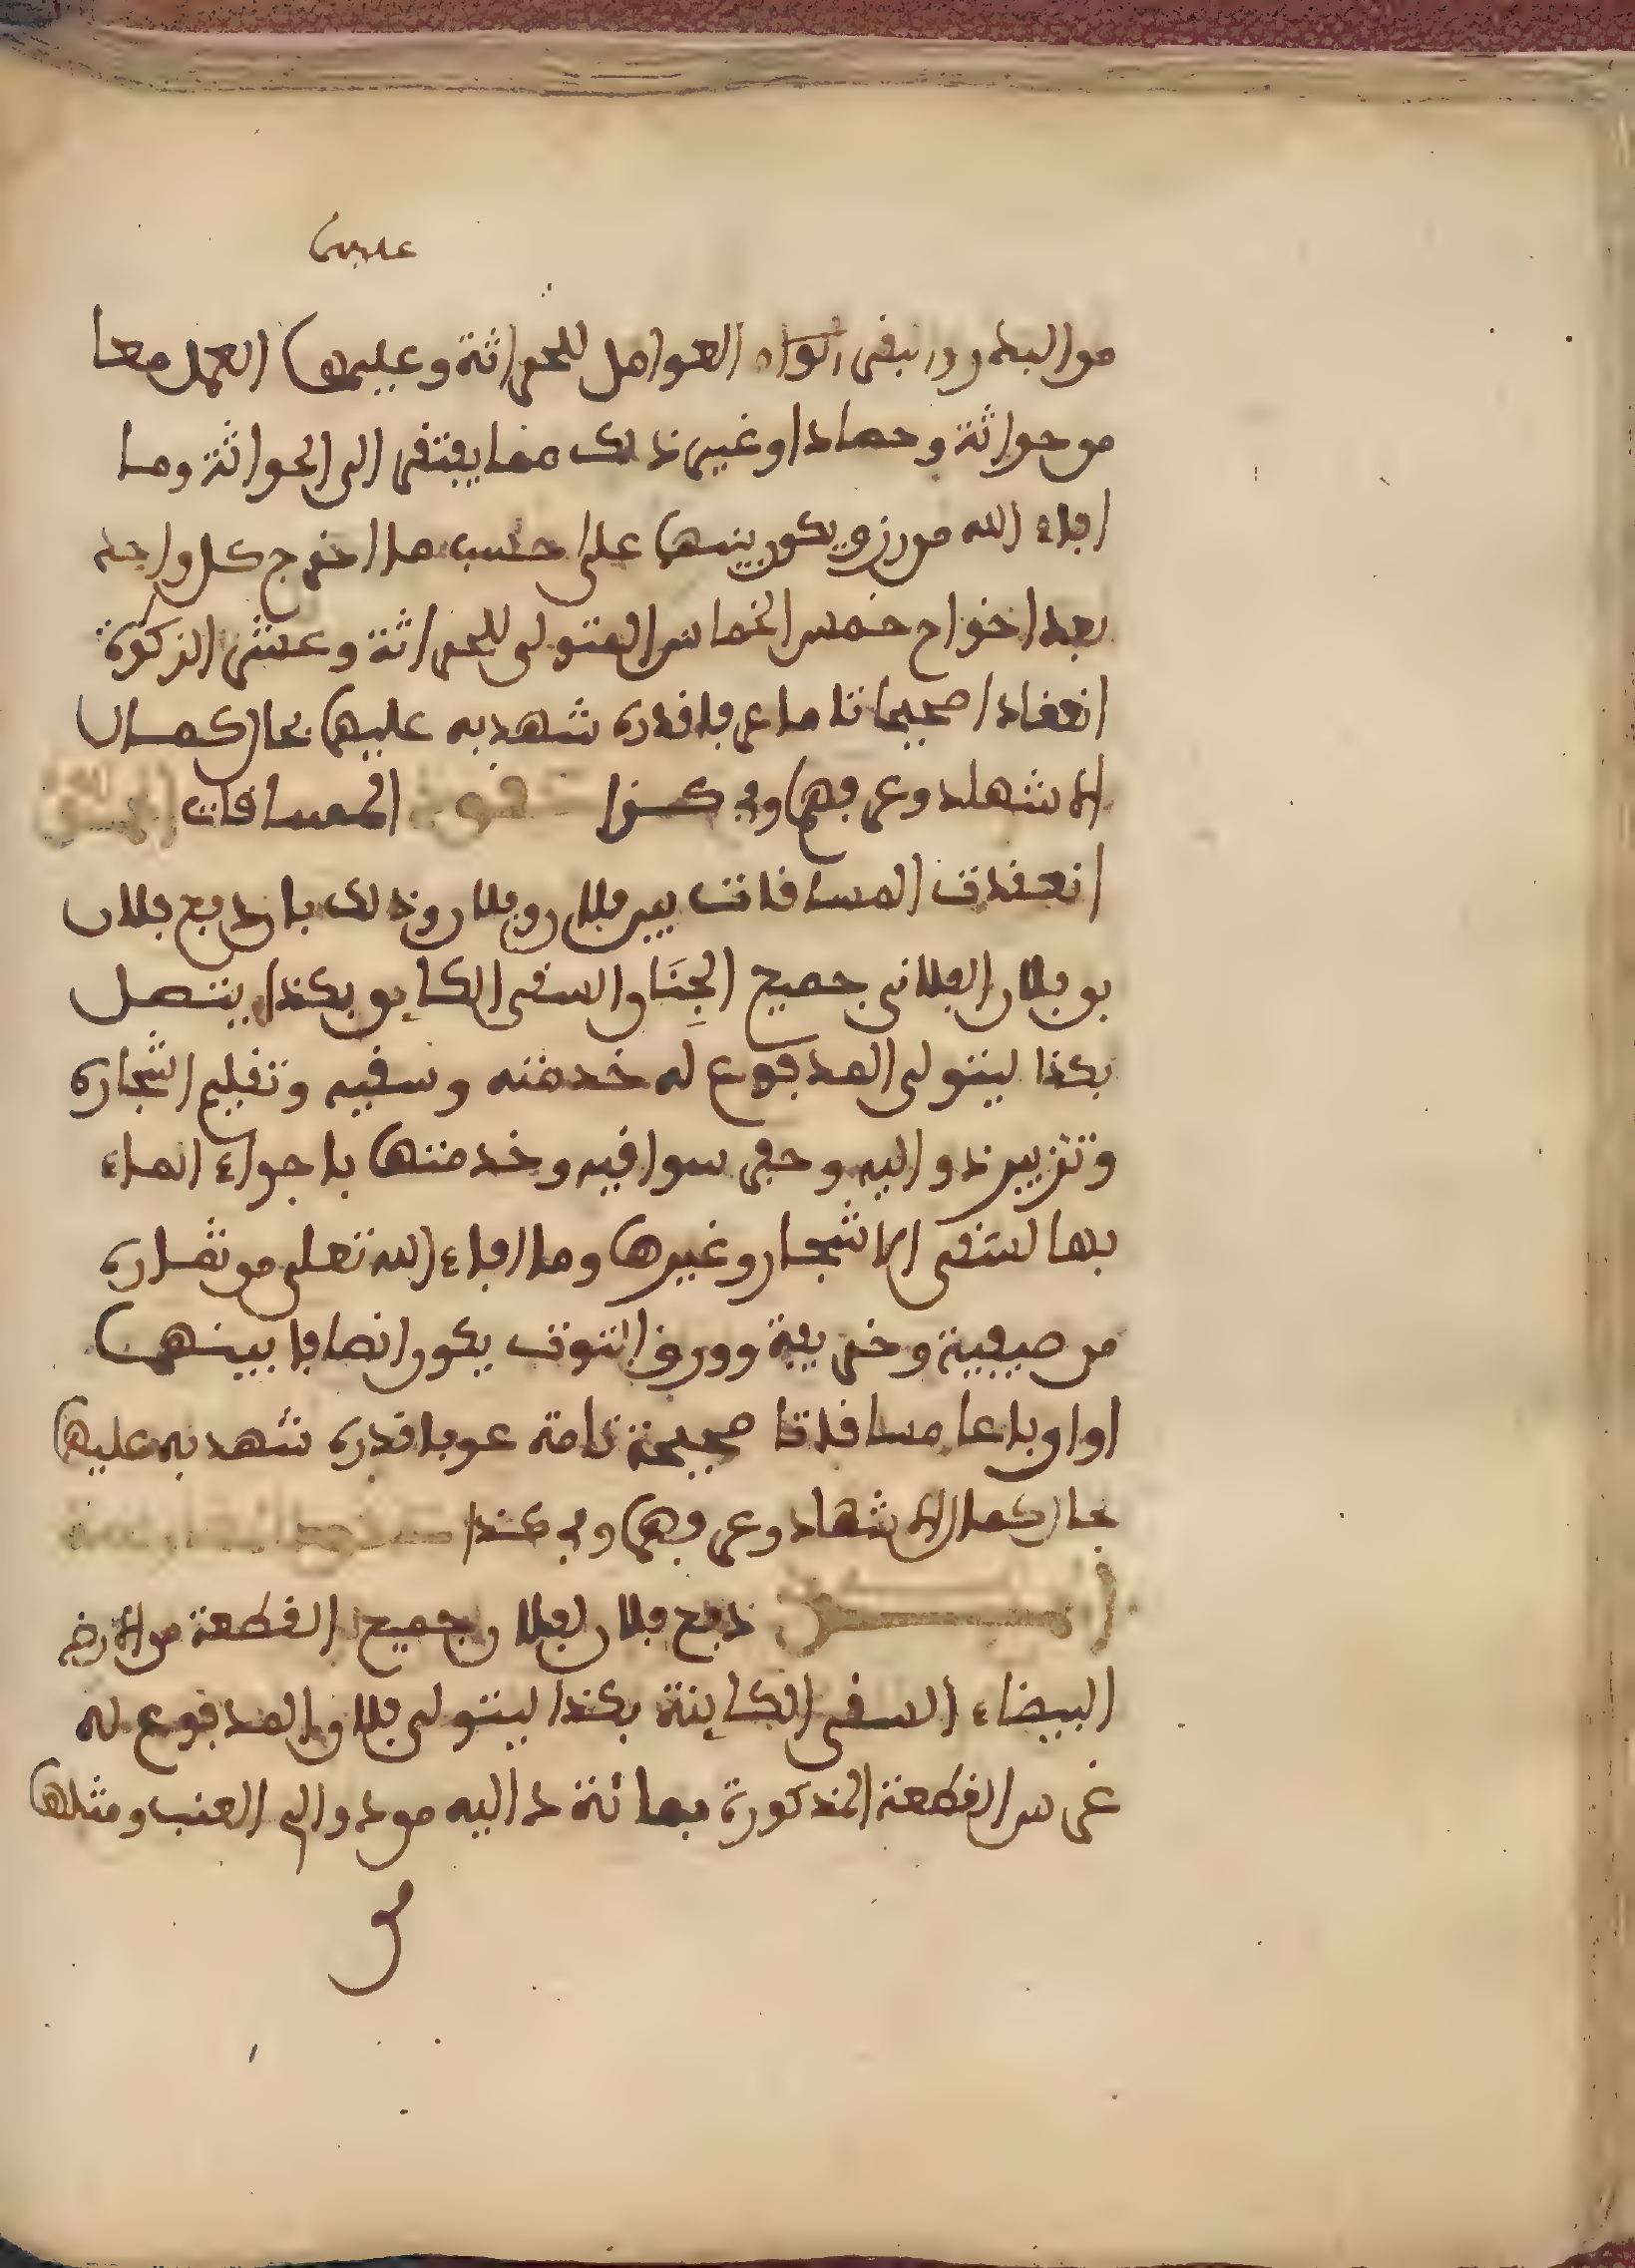 من البذر و بقر العوامل للحراثة وعليهما العمل معا
من حراثة وحصاد او غير ذلك مما يفتقر الى الحراثة وما
افاء الله من رزق يكون بينهما على حسب ما اخرج كل واحد
بعد اخراج خمس الخماس المتولى للحراثة وعشر الزكوة
انعقادا صحيحا تاما عرفا قدره شهد به عليهما بحال كمال
الاشهاد وعرفهما وفي كذا المساقات
انعقدت المساقات بين فلان وفلان وذلك بان دفع فلان
بن فلان الفلاني جميع الجِنَان السقى الكاين بكذا يتصل
بكذا ليتولى المدفوع له خدمته وسقيه وتقليم اشجاره
وتزبير دواليه وحفر سواقيه وخدمتها باجراء الماء
بها لسقى الاشجار وغيرها وما افاء الله تعلى من ثماره
من صيفية وخريفية وورق التوت يكون انصافا بينهما
اوا وباعا مساقاتا صحيحة تامة عرفا قدره شهد به عليهما
بحال كمال الاشهاد وعرفهما وفي كذا
دفع فلان لفلان جميع القطعة من الارض
البيضاء السقى الكاينة بكذا ليتولى فلان المدفوع له
غرس القطعة المذكورة بمائة داليه من دوالى العنب ومثلها